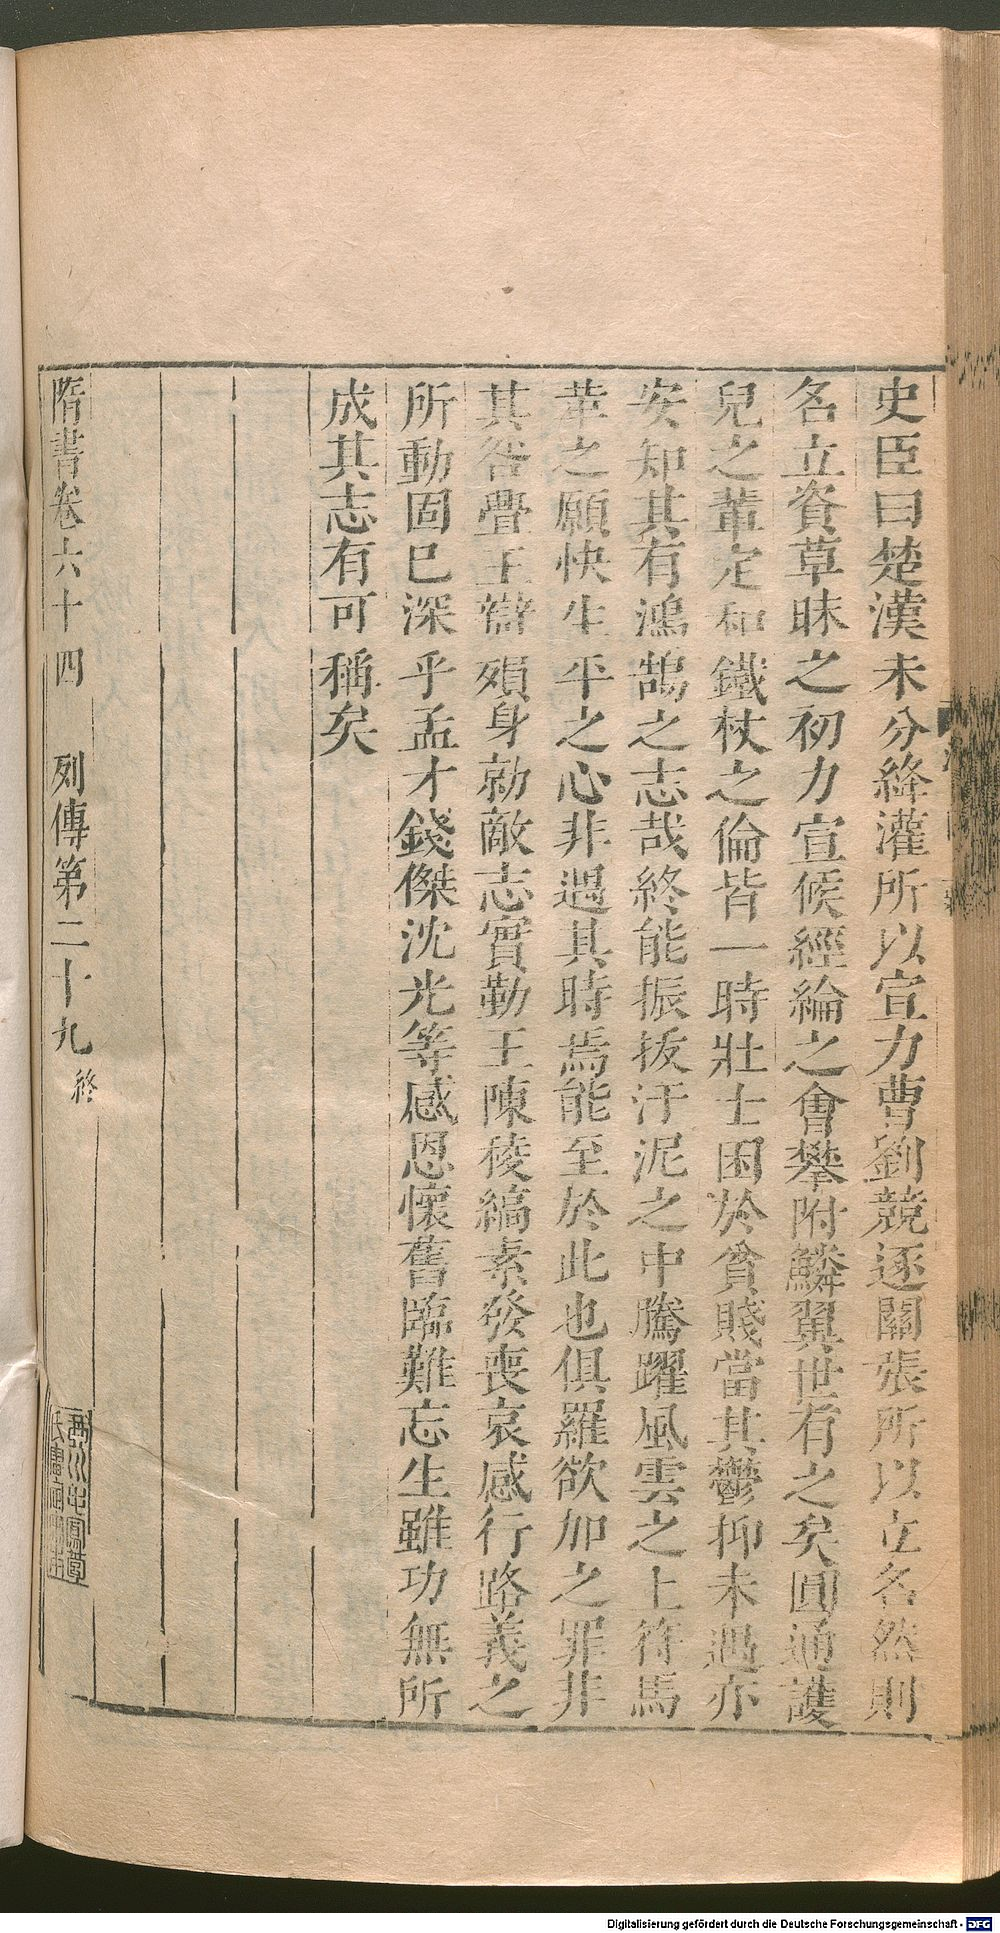 史臣曰楚漢未分絳灌所以宣力曹劉競逐關張所以立名然則
名立資草昧之初力宣候經綸之會攀附鱗翼世有之矣圓通護
兒之輩定和鐵杖之倫皆一時壯士困於貧賤當其鬱抑未遇亦
安知其有鴻鵠之志哉終能振拔汙泥之中騰躍風雲之上符馬
革之願快生平之心非遇其時焉能至於此也俱羅欲加之罪非
其咎釁王辯殞身勍敵志實勤王陳稜縞素發喪哀感行路義之
所動固已深乎孟才錢傑沈光等感恩懷舊臨難忘生雖功無所
成其志有可稱矣
隋書卷六十四 列傳第二十九 終
Digitalisierung gefördert durch die Deutsche Forschungsgemeinschaft - DFG